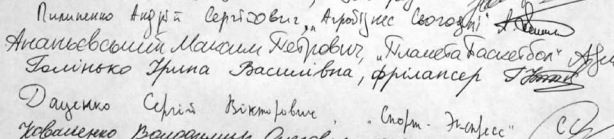 Пилипенко Андрій Сергійович, „Агробізнес Сьогодні"
Ананьєвський Максим Петрович, „Планета Баскетбол"
Голінько Ірина Василівна, фрілансер
Даценко Сергій Вікторович, „Спорт-Экспресс"
Коваленко